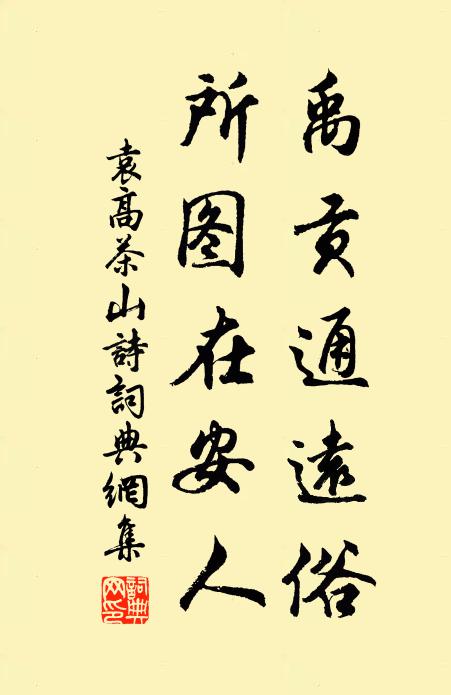 禹贡通遠俗
所图在安人
袁高茶山詩詞典網集
詞典网印